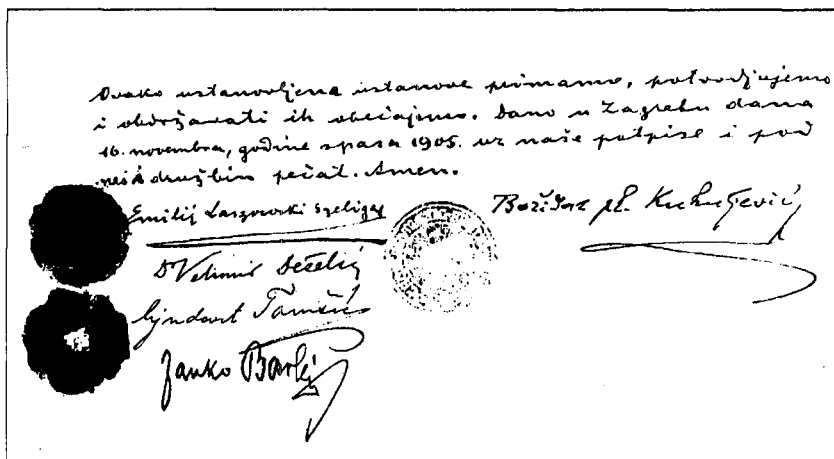 Ovako ustanovljena ustanove primamo, potvrdjujemo
i obdržavati ih obećajemo. Dano u Zagrebu dana
16. novembra, godine spasa 1905. uz naše potpise i pod
naš družbin pečat. Amen.
Emilij Laszowski Szeliga
Božidar pl. Kukuljević
Dr Velimir Deželić
Ljudevit
Janko Barlé